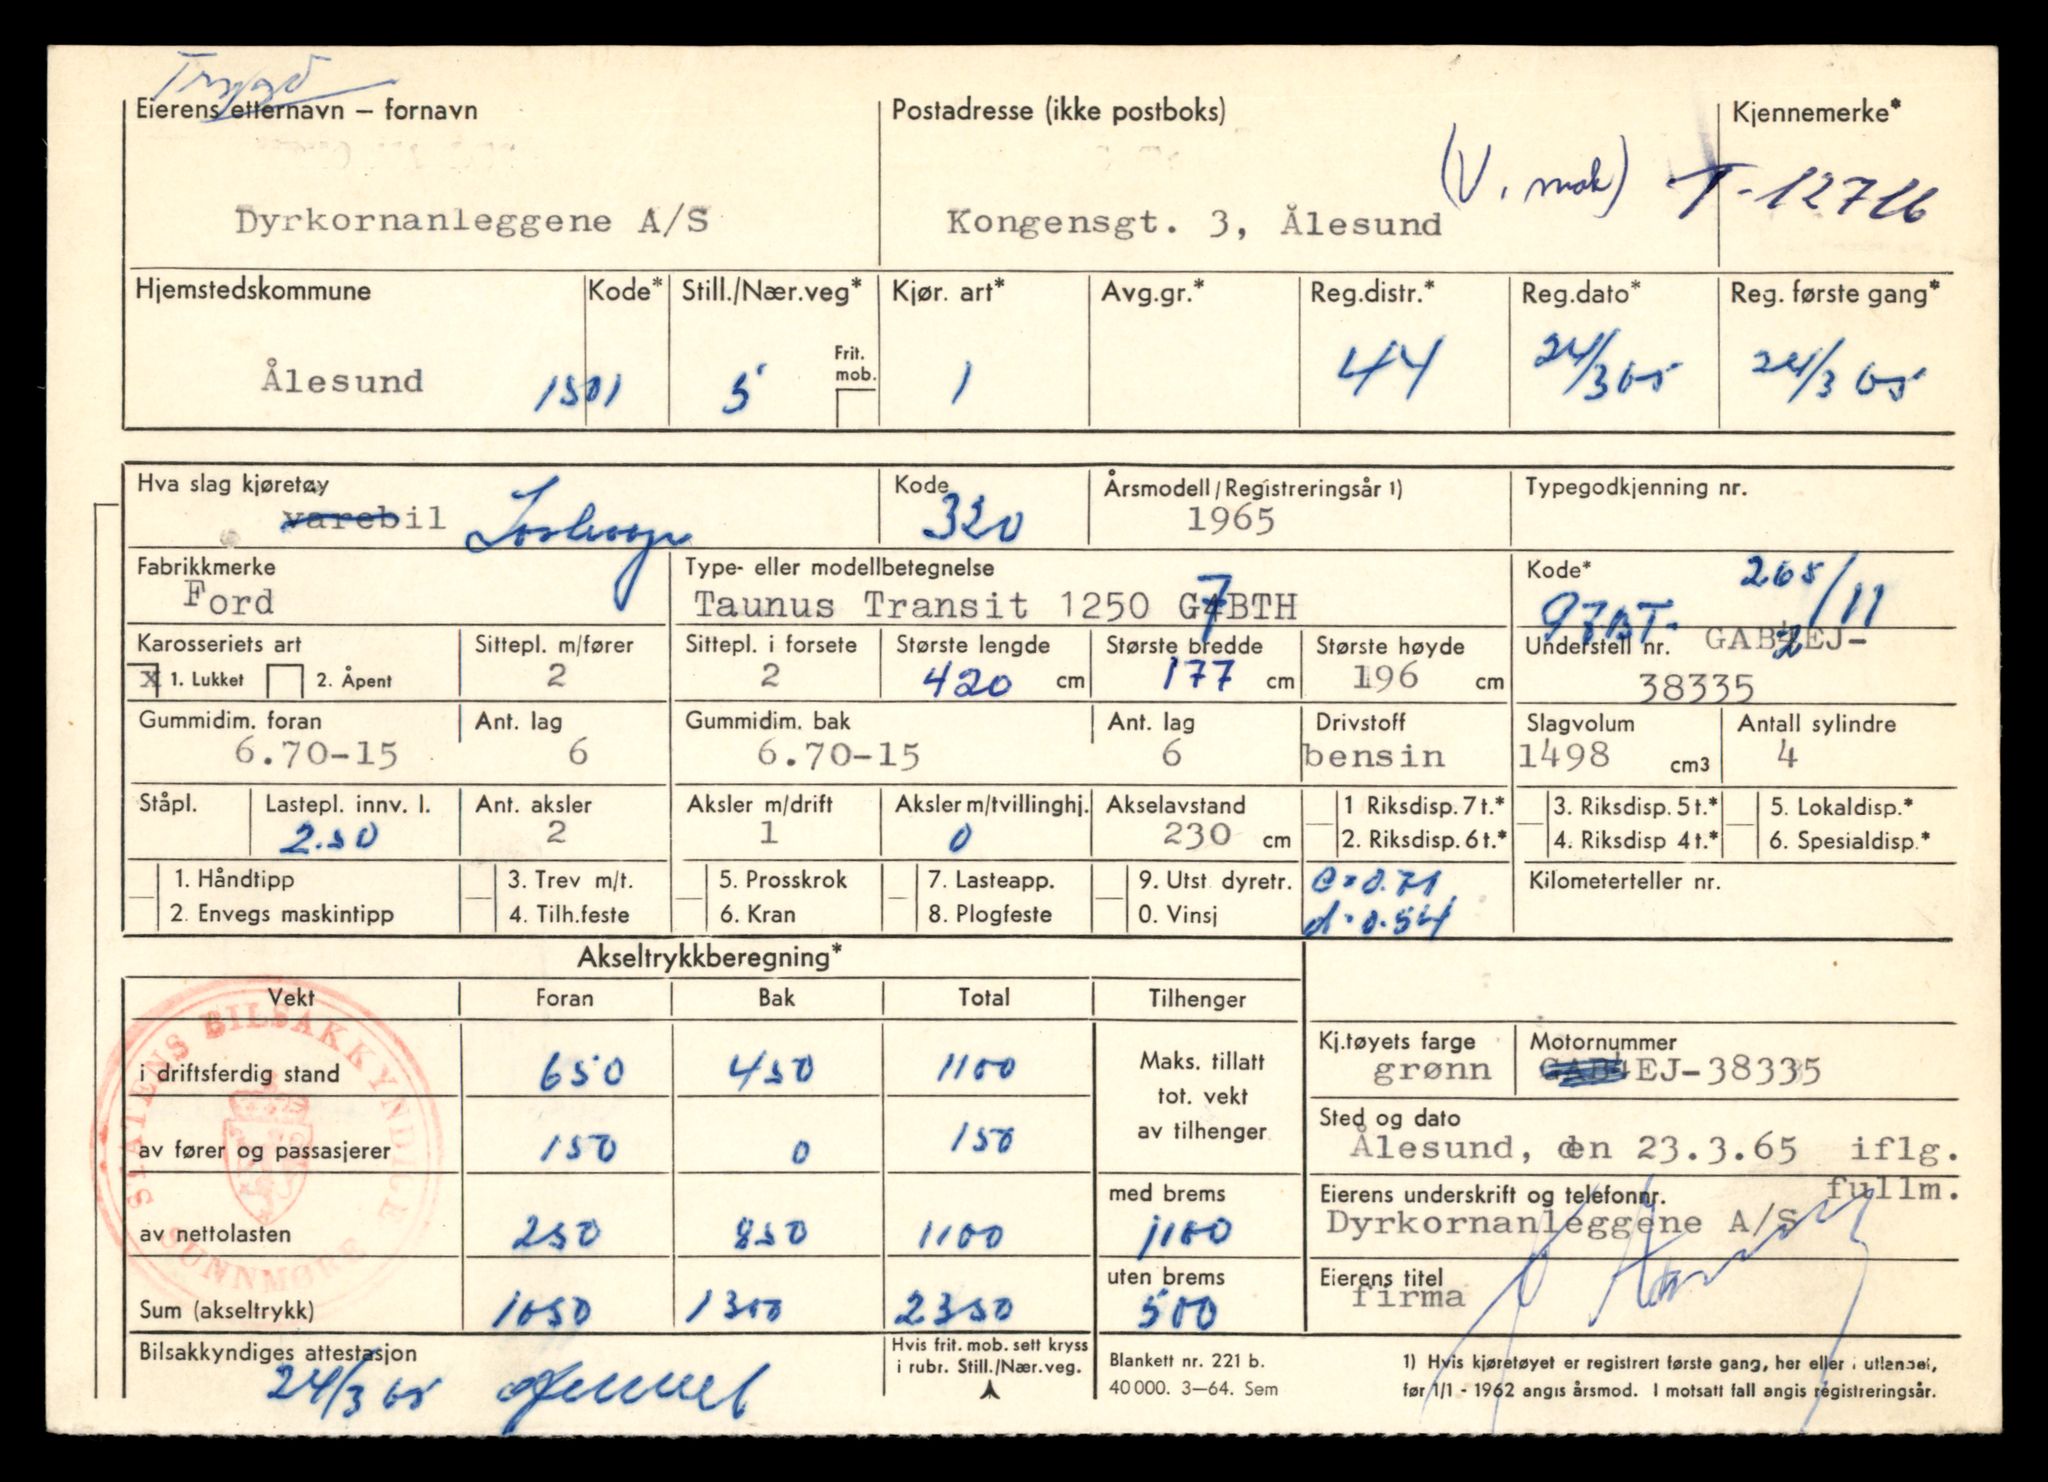 Eierens etternavn – fornavn
Postadresse (ikke postboks)
Kjennemerke*
Dyrkornanleggene A/S
Kongensgt. 3, Ålesund
(V. mok) T-12716
Hjemstedskommune
Kode*
Still./Nær.veg*
Kjør. art*
Avg.gr.*
Reg.distr.*
Reg.dato*
Reg. første gang*
Ålesund
1501
5
Frit. mob.
1
44
24/3 65
24/3 65
Hva slag kjøretøy
varebil
Kode
320
Årsmodell/Registreringsår 1)
1965
Typegodkjenning nr.
Fabrikkmerke
Ford
Type- eller modellbetegnelse
Taunus Transit 1250 G7BTH
Kode*
265/11
97BT-
Karosseriets art
x 1. Lukket 2. Åpent
Sittepl. m/fører
2
Sittepl. i forsete
2
Største lengde
420 cm
Største bredde
177 cm
Største høyde
196 cm
Understell nr.
GAB2EJ-
38335
Gummidim. foran
6.70-15
Ant. lag
6
Gummidim. bak
6.70-15
Ant. lag
6
Drivstoff
bensin
Slagvolum
1498 cm3
Antall sylindre
4
Ståpl.
Lastepl. innv. l.
2.50
Ant. aksler
2
Aksler m/drift
1
Aksler m/tvillinghj.
0
Akselavstand
230 cm
1 Riksdisp. 7 t.*
2. Riksdisp. 6 t.*
3. Riksdisp. 5 t.*
4. Riksdisp 4 t.*
5. Lokaldisp.*
6. Spesialdisp.*
1. Håndtipp
2. Envegs maskintipp
3. Trev m/t.
4. Tilh.feste
5. Prosskrok
6. Kran
7. Lasteapp.
8. Plogfeste
9. Utst dyretr.
0. Vinsj
c = 0.71
d = 0.54
Kilometerteller nr.
Akseltrykkberegning*
Vekt Foran Bak Total Tilhenger
i driftsferdig stand 650 450 1100
Maks. tillatt
tot. vekt
av tilhenger
av fører og passasjerer 150 0 150
av nettolasten 250 850 1100
med brems
1100
Sum (akseltrykk) 1050 1300 2350
uten brems
500
STATENS BILSAKKYNDIGE
SUNNMØRE
Kj.tøyets farge
grønn
Motornummer
GAB4EJ-38335
Sted og dato
Ålesund, den 23.3.65 iflg.
fullm.
Eierens underskrift og telefonnr.
Dyrkornanleggene A/S
Eierens titel
firma
Bilsakkyndiges attestasjon
24/3 65
Hvis frit. mob. sett kryss
i rubr. Still./Nær.veg.
Blankett nr. 221 b.
40 000. 3–64. Sem
1) Hvis kjøretøyet er registrert første gang, her eller i utlandet,
før 1/1 - 1962 angis årsmod. I motsatt fall angis registreringsår.